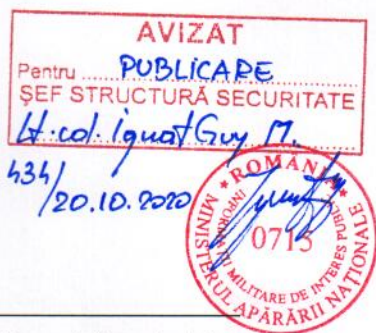 AVIZAT
Pentru ........ PUBLICARE
ȘEF STRUCTURĂ SECURITATE
Lt.col. Ignat Guy M.
434/20.10.2020
* ROMÂNIA *
MINISTERUL APĂRĂRII NAȚIONALE
INFORMAȚII MILITARE DE INTERES PUBLIC
0713